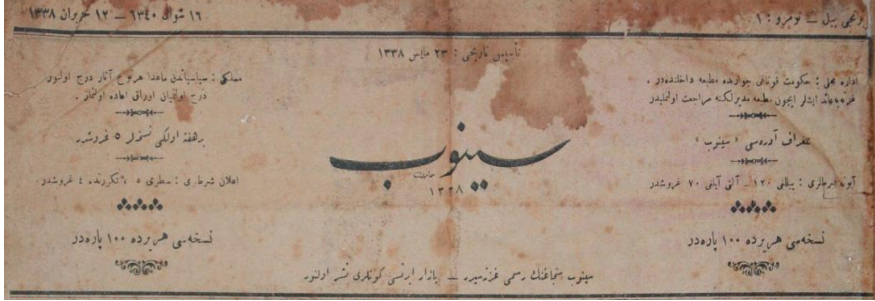 برنجی ییل — نومرو : ١
١٦ شوال ١٣٤٠ — ١٢ حزیران ١٣٣٨
تأسیس تاریخی : ٢٣ مایس ١٣٣٨
اداره محلی : حکومت قوناغی جوارنده مطبعه داخلنده‌در .
ایشلر ایچون مطبعه مدیرلکنه مراجعت اولنملیدر
تلغراف آدره‌سی « سینوب »
آبونه شرطلری : ییللغی ١٢٠ آلتی آیلغی ٧٠ غروشدر
نسخه‌سی هر یرده ١٠٠ پاره‌در
سینوب
١٣٣٨
مسلکی : سیاسیاتدن ماعدا هر نوع آثار درج اولنور
درج اولنمیان اوراق اعاده اولنماز .
بر هفته اولکی نسخه‌لر ٥ غروشدر
اعلان شرطلری : سطری ٥ تکررنده ٤ غروشدر
نسخه‌سی هر یرده ١٠٠ پاره‌در
سینوب سنجاغنك رسمی غزته‌سیدر — بازار ایرتسی کونلری نشر اولنور